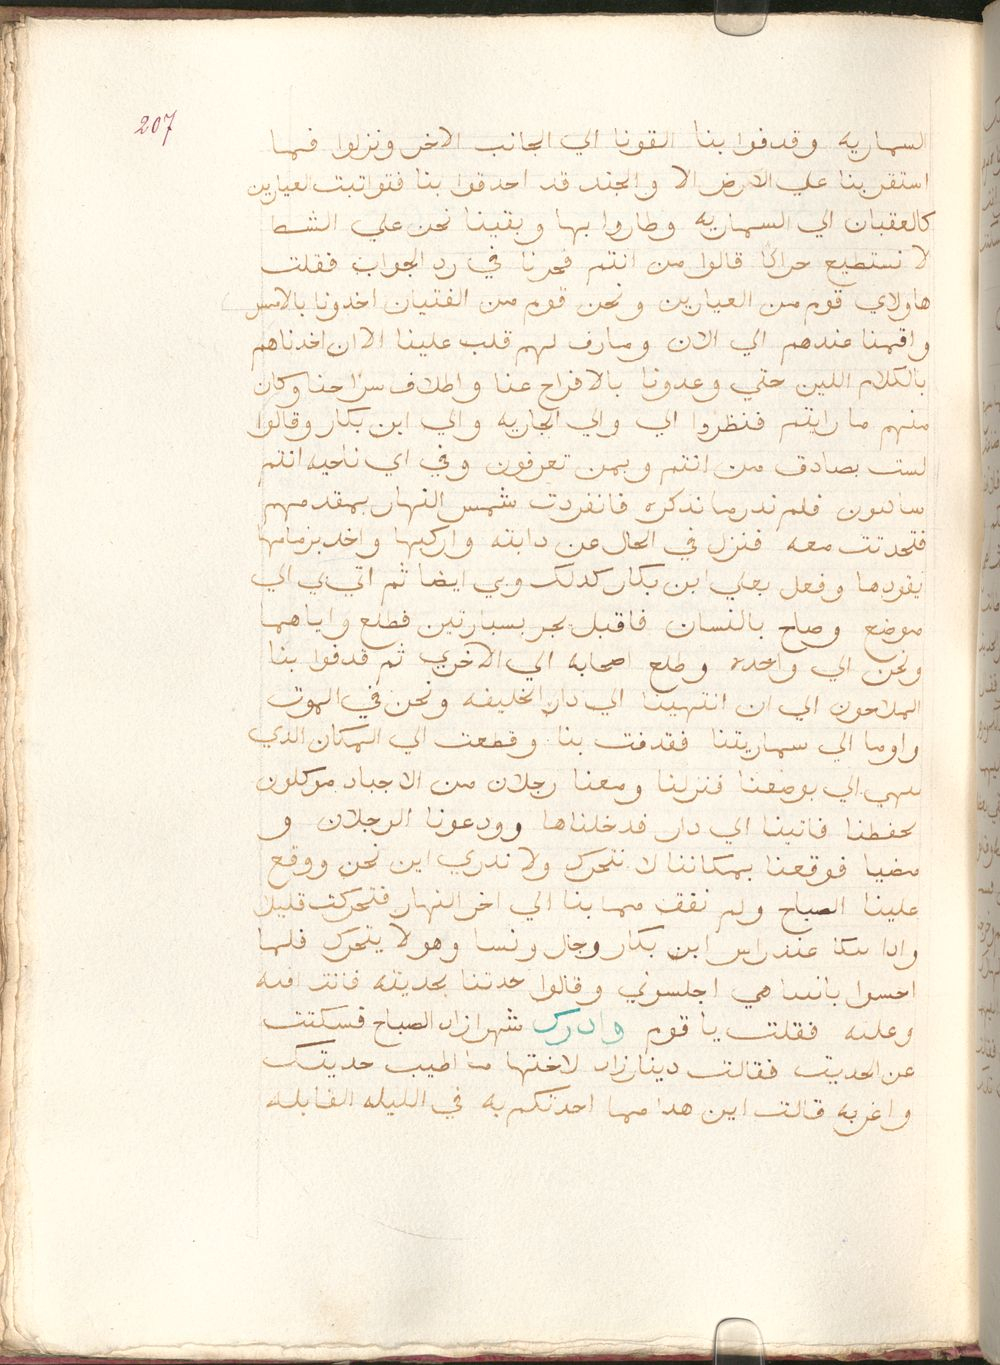 207
السماريه وقدفوا بنا القونا الي الجانب الاخر ونزلوا فما
استقر بنا علي الارض الا والجند قد احدقوا بنا فتواتبت العيارين
كالعقبان الي السماريه وطاروا بها وبقينا نحن علي الشط
لا نستطيع حراكا قالوا من انتم فحرنا في رد الجواب فقلت
هاولاي قوم من العيارين ونحن قوم من الفتيان اخدونا بالامس
واقمنا عندهم الي الان ومارف لهم قلب علينا الا ان اخدناهم
بالكلام اللين حتي وعدونا بالافراج عنا واطلاف سراحنا وكان
منهم ما رايتم فنظروا الي والي الجاريه والي ابن بكار وقالوا
لست بصادق من انتم وبمن تعرفون وفي اي ناحيه انتم
ساكنون فلم ندر ما ندكره فانفردت شمس النهار بمقدمهم
فتحدتت معه فنزل في الحال عن دابته واركبها واخد بزمامها
يقودها وفعل بعلي ابن بكار كدلك وبي ايضا تم اتي بي الي
موضع وصاح بالنسان فاقبل بسمارتين فطلع واياهما
ونحن الي واحده وطلع اصحابه الي الاخري تم قدفوا بنا
الملاحون الي ان انتهينا الي دار الخليفه ونحن في الموت
واوما الي سماريتنا فقدفت بنا وقطعت الي المكان الدي
الي بوضعنا فنزلنا ومعنا رجلان من الاجناد موكلون
بحفظنا فاتينا الي دار فدخلناها وودعونا الرجلان و
مضيا فوقعنا بمكاننا لا نتحرك ولا ندري اين نحن ووقع
علينا الصباح ولم نفق مما بنا الي اخر النهار فتحركت قليلا
وادا عند راس ابن بكار رجال ونسا وهو لا يتحرك فلما
احسوا اجلسوني وقالوا حدتنا بحديته فانت
فقلت يا قوم وادرك شهرازاد الصباح فسكتت
عن الحديت فقالت دينارزاد لاختها ما اطيب حديتك
واغربه قالت اين هدا مما احدتكم به في الليله القابله